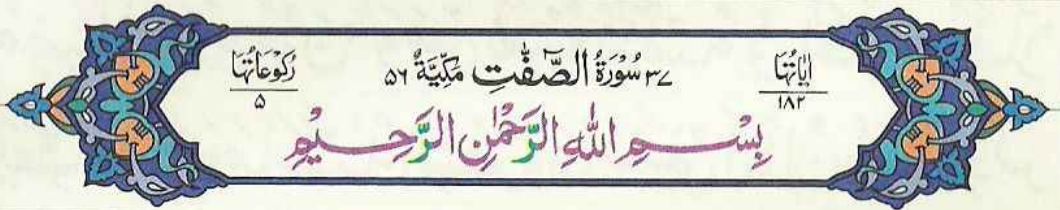 اٰیَاتُهَا ۱۸۲ ۳۷ سُوْرَةُ الصّٰٓفّٰتِ مَكِّیَّةٌ ۵۶ رُكُوْعَاتُهَا ۵
بِسْمِ اللّٰهِ الرَّحْمٰنِ الرَّحِیْمِ